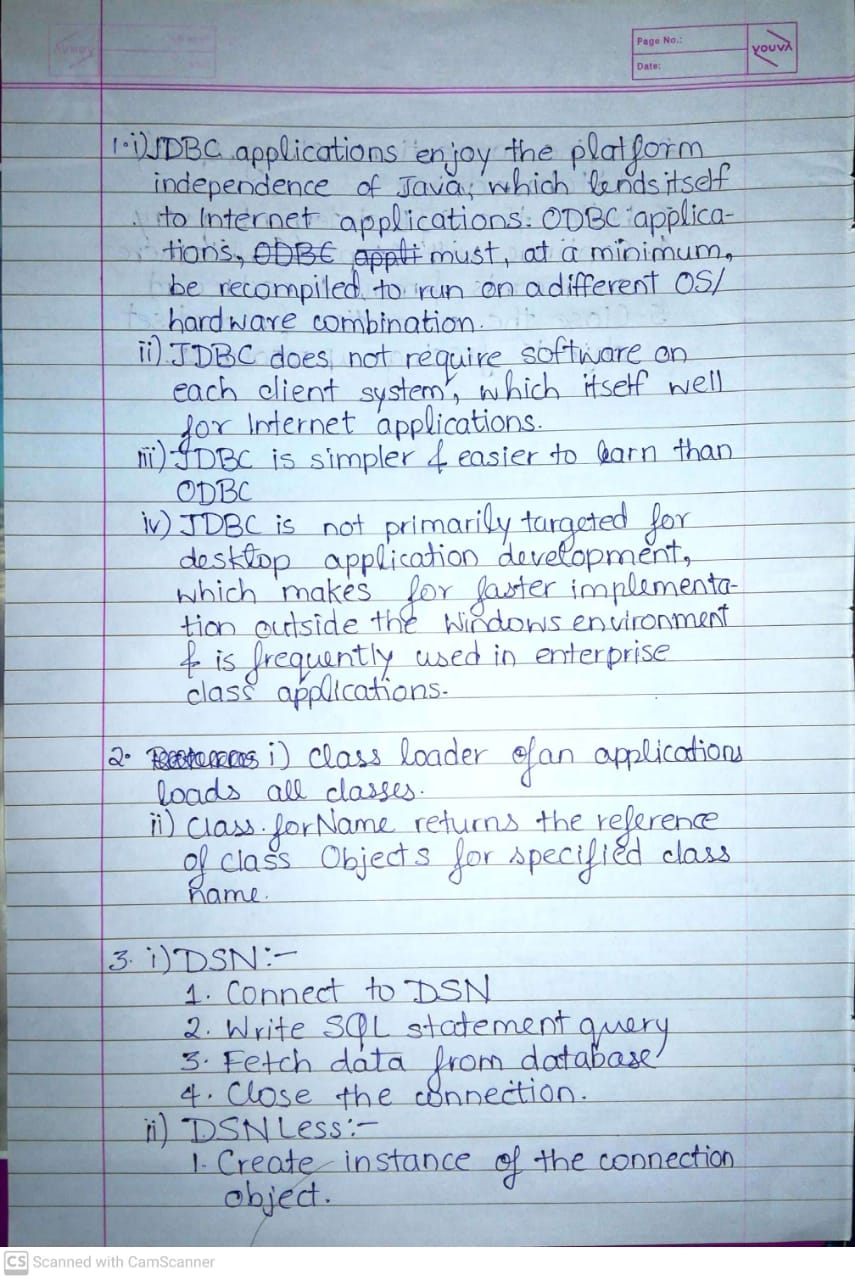 Page No.:
Date:
YOUVA
1. i) JDBC applications enjoy the platform
independence of Java, which lends itself
to Internet applications. ODBC applica-
tions, ODBC appli must, at a minimum,
be recompiled to run on a different OS/
hardware combination.
ii) JDBC does not require software on
each client system, which itself well
for Internet applications.
iii) JDBC is simpler & easier to learn than
ODBC
iv) JDBC is not primarily targeted for
desktop application development,
which makes for faster implementa-
tion outside the Windows environment
& is frequently used in enterprise
class applications.
2. i) Class loader of an applications
loads all classes.
ii) Class.forName returns the reference
of class Objects for specified class
name.
3. i) DSN:-
1. Connect to DSN
2. Write SQL statement query
3. Fetch data from database
4. Close the connection.
ii) DSN Less:-
1. Create instance of the connection
object.
CS Scanned with CamScanner